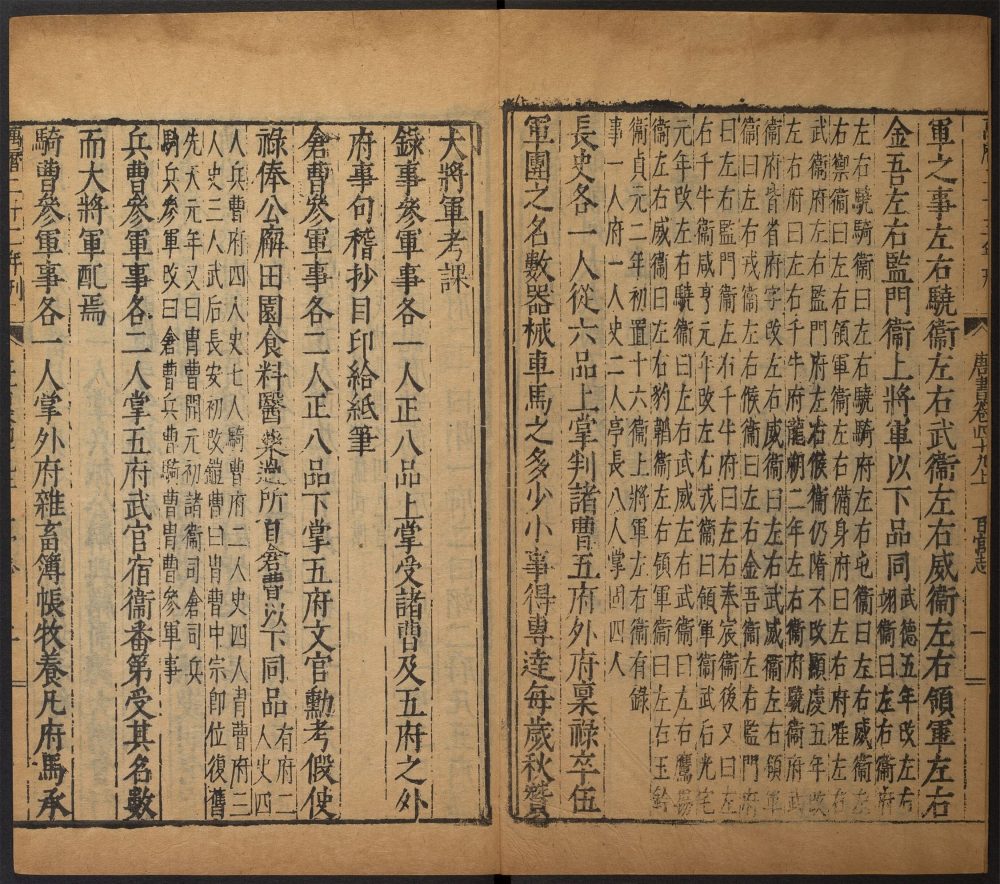 唐書卷四十九上　百官志　一
軍之事左右驍衞左右武衞左右威衞左右領軍左右
金吾左右監門衞上將軍以下品同武德五年改左右翊衞曰左右衞府
左右驍騎衞曰左右驍騎府左右屯衞曰左右威衞
右禦衞曰左右領軍衞左右備身府曰左右府唯左右
武衞府左右監門府左右候衞仍隋不改顯慶五年改
左右府曰左右千牛府龍朔二年左右衞府驍衞府武
衞府皆省府字改左右威衞曰左右武威衞左右領軍
衞曰左右戎衞左右候衞曰左右金吾衞左右監門府
曰左右監門衞左右千牛府曰左右奉宸衞後又曰左
右千牛衞咸亨元年改左右戎衞曰領軍衞武后光宅
元年改左右驍衞曰左右武威左右武衞曰左右鷹揚
衞左右威衞曰左右豹韜衞左右領軍衞曰左右玉鈐
衞貞元二年初置十六衞上將軍左右衞有錄
事一人府一人史二人亭長八人掌固四人
長史各一人從六品上掌判諸曹五府外府稟祿卒伍
軍團之名數器械車馬之多少小事得專達每歲秋贊
大將軍考課
錄事參軍事各一人正八品上掌受諸曹及五府之外
府事句稽抄目印給紙筆
倉曹參軍事各二人正八品下掌五府文官勳考假使
祿俸公廨田園食料醫藥過所自倉曹以下同品有府二人史四
人兵曹府四人史七人騎曹府二人史四人胄曹府三
人史三人武后長安初改鎧曹曰胄曹中宗卽位復舊
先天元年又曰胄曹開元初諸衞司倉司兵
騎兵參軍改曰倉曹兵曹騎曹胄曹參軍事
兵曹參軍事各二人掌五府武官宿衞番第受其名數
而大將軍配焉
騎曹參軍事各一人掌外府雜畜簿帳牧養凡府馬承
萬曆二十三年刊